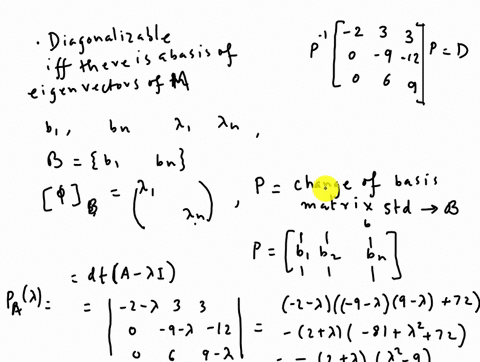 · Diagonalizable
iff there is a basis of
eigenvectors of M
P⁻¹ [ -2 3 3
0 -9 -12
0 6 9 ] P = D
b₁, bn λ₁ λn,
B = {b₁ bn}
[ϕ]_B = ( λ₁
λn ),
P = change of basis
matrix std → B
P = [ b₁ b₂ bn ]
P_A(λ) = = dt(A-λI)
= | -2-λ 3 3
0 -9-λ -12
0 6 9-λ |
= (-2-λ)((-9-λ)(9-λ)+72)
= -(2+λ)(-81+λ²+72)
= -(2+λ)(λ²-9)